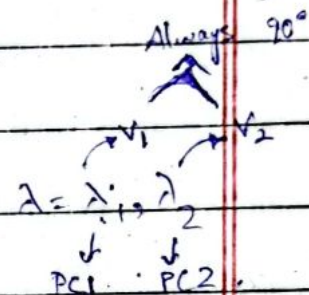 Always 90°
V₁ V₂
λ = λ₁, λ₂
PC1 PC2.